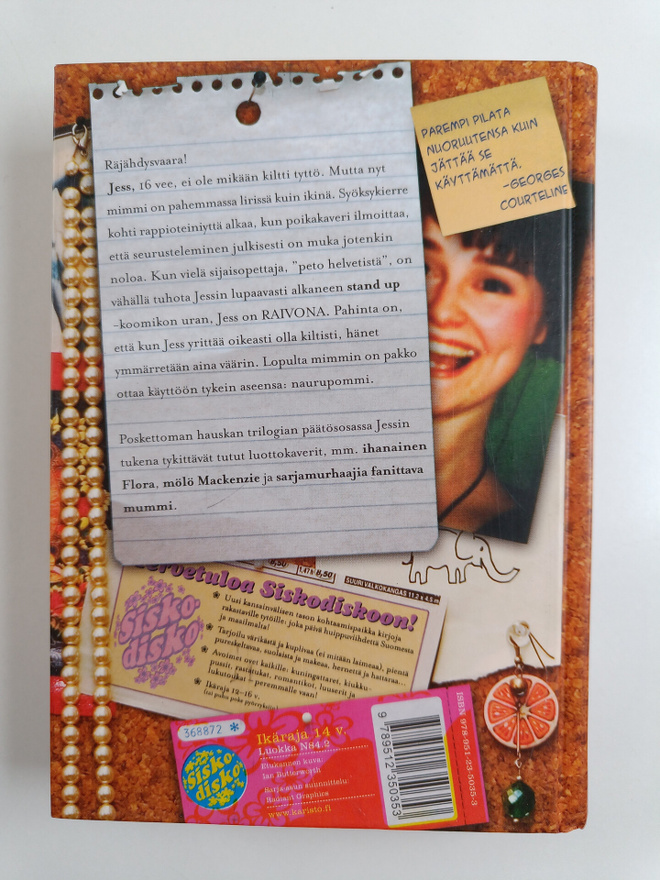 Räjähdysvaara!
Jess, 16 vee, ei ole mikään kiltti tyttö. Mutta nyt
mimmi on pahemmassa lirissä kuin ikinä. Syöksykierre
kohti rappioteiniyttä alkaa, kun poikakaveri ilmoittaa,
että seurusteleminen julkisesti on muka jotenkin
noloa. Kun vielä sijaisopettaja, "peto helvetistä", on
vähällä tuhota Jessin lupaavasti alkaneen stand up
-koomikon uran, Jess on RAIVONA. Pahinta on,
että kun Jess yrittää oikeasti olla kiltisti, hänet
ymmärretään aina väärin. Lopulta mimmin on pakko
ottaa käyttöön tykein aseensa: naurupommi.
Poskettoman hauskan trilogian päätösosassa Jessin
tukena tykittävät tutut luottokaverit, mm. ihanainen
Flora, mölö Mackenzie ja sarjamurhaajia fanittava
mummi.
PAREMPI PILATA
NUORUUTENSA KUIN
JÄTTÄÄ SE
KÄYTTÄMÄTTÄ.
-GEORGES
COURTELINE
8,50
1,47 € 8,50
SUURI VALKOKANGAS 11,2 x 4,5 m
Tervetuloa Siskodiskoon!
Sisko-
disko
Uusi kansainvälisen tason kohtaamispaikka kirjoja
rakastaville tytöille: joka päivä huippuviihdettä Suomesta
ja maailmalta!
Tarjolla värikästä ja kuplivaa (ei mitään laimeaa), pientä
pureskeltavaa, suolaista ja makeaa, hernettä ja hattaraa...
Avoinnet ovet kaikille: kuningattaret, kiukku-
pussit, rastatukat, romantikot, luuserit ja
lukutoukat – peremmälle vaan!
Ikäraja 12–16 v.
368872 *
Ikäraja 14 v.
Luokka N84.2
Etukannen kuva:
Ian Butterworth
Sarja-asun suunnittelu:
Radiant Graphics
www.karisto.fi
Sisko-
disko
ISBN 978-951-23-5035-3
9 789512 350353